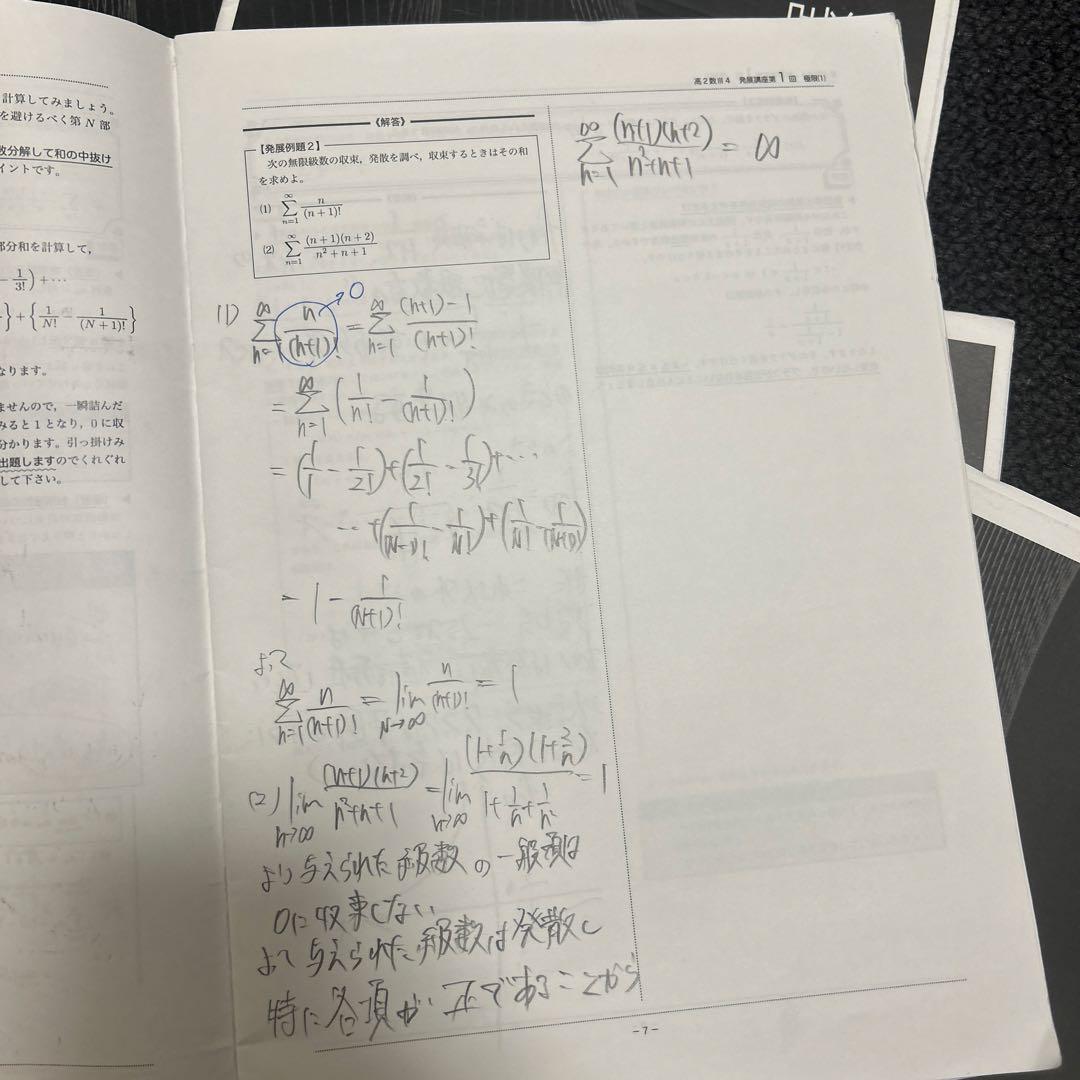 計算してみましょう。
を避けるべく第 N 部
数分解して和の中抜け
イントです。
部分和を計算して,
- 1/3!) + ⋯
} + {1/N! - 1/(N+1)!}
なります。
ませんので,一瞬詰んだ
みると 1 となり,0 に収
分かります。引っ掛けみ
出題しますのでくれぐれ
して下さい。
高2数Ⅲ4 発展講座第1回 極限(1)
《解答》
【発展例題2】
次の無限級数の収束,発散を調べ,収束するときはその和
を求めよ。
(1) ∑_{n=1}^{∞} n/(n+1)!
(2) ∑_{n=1}^{∞} (n+1)(n+2)/(n²+n+1)
(1) ∑_{n=1}^{∞} n/(n+1)! → 0 = ∑_{n=1}^{∞} ((n+1)-1)/(n+1)!
= ∑_{n=1}^{∞} (1/n! - 1/(n+1)!)
= (1/1 - 1/2!) + (1/2! - 1/3!) + ⋯
⋯ + (1/(N-1)! - 1/N!) + (1/N! - 1/(N+1)!)
= 1 - 1/(N+1)!
よって
∑_{n=1}^{∞} n/(n+1)! = lim_{N→∞} n/(n+1)! = 1
(2) lim_{n→∞} (n+1)(n+2)/(n²+n+1) = lim_{n→∞} (1+1/n)(1+2/n)/(1+1/n+1/n²) = 1
より 与えられた級数の一般項は
0に収束しない
よって与えられた級数は発散し
特に各項が正であることから
∑_{n=1}^{∞} (n+1)(n+2)/(n²+n+1) = ∞
-7-